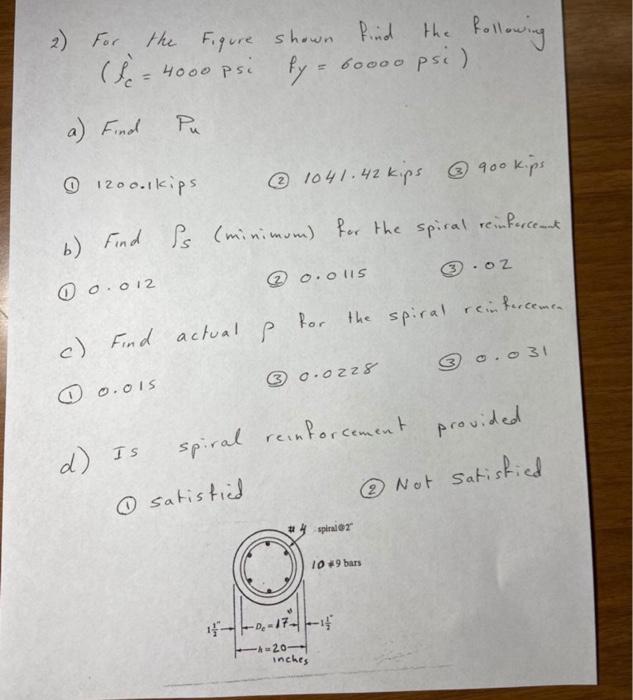 2) For the Figure shown find the following
(f'c = 4000 psi fy = 60000 psi)
a) Find Pu
① 1200.1kips ② 1041.42 kips ③ 900 kips
b) Find ρs (minimum) for the spiral reinforcement
① 0.012 ② 0.0115 ③ .02
c) Find actual ρ for the spiral reinforcemen
① 0.015 ③ 0.0228 ③ 0.031
d) Is spiral reinforcement provided
① satisfied ② Not satisfied
#4 spiral@2"
10 #9 bars
1½" Dc = 17" 1½"
h = 20
inches